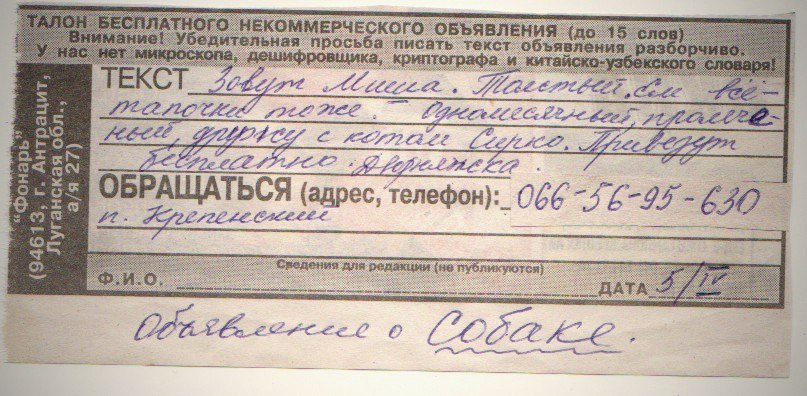 ТАЛОН БЕСПЛАТНОГО НЕКОММЕРЧЕСКОГО ОБЪЯВЛЕНИЯ (до 15 слов)
Внимание! Убедительная просьба писать текст объявления разборчиво.
У нас нет микроскопа, дешифровщика, криптографа и китайско-узбекского словаря!
"Фонарь"
(94613, г. Антрацит,
Луганская обл.,
а/я 27)
ТЕКСТ Зовут Миша. Толстый. Ем всё-
тапочки тоже. - Одномесячный, приме-
ный, дружу с котом Сирко. Привезут
бесплатно. Дворняжка.
ОБРАЩАТЬСЯ (адрес, телефон): 066-56-95-630
п. Крепенский
Сведения для редакции (не публикуются)
Ф.И.О. ДАТА 5/IV
Объявление о Собаке.